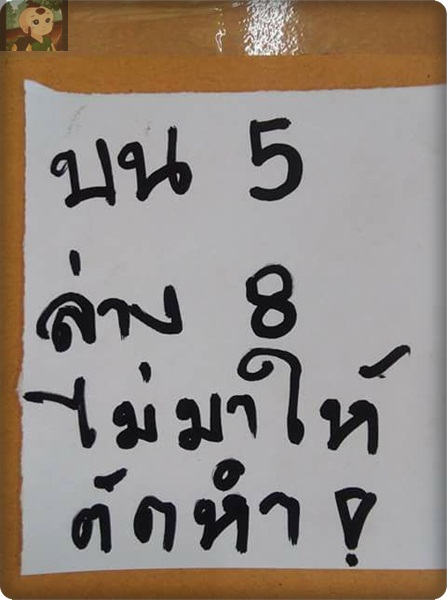 บน 5
ล่าง 8
ไม่มาให้
ตัดหำ!